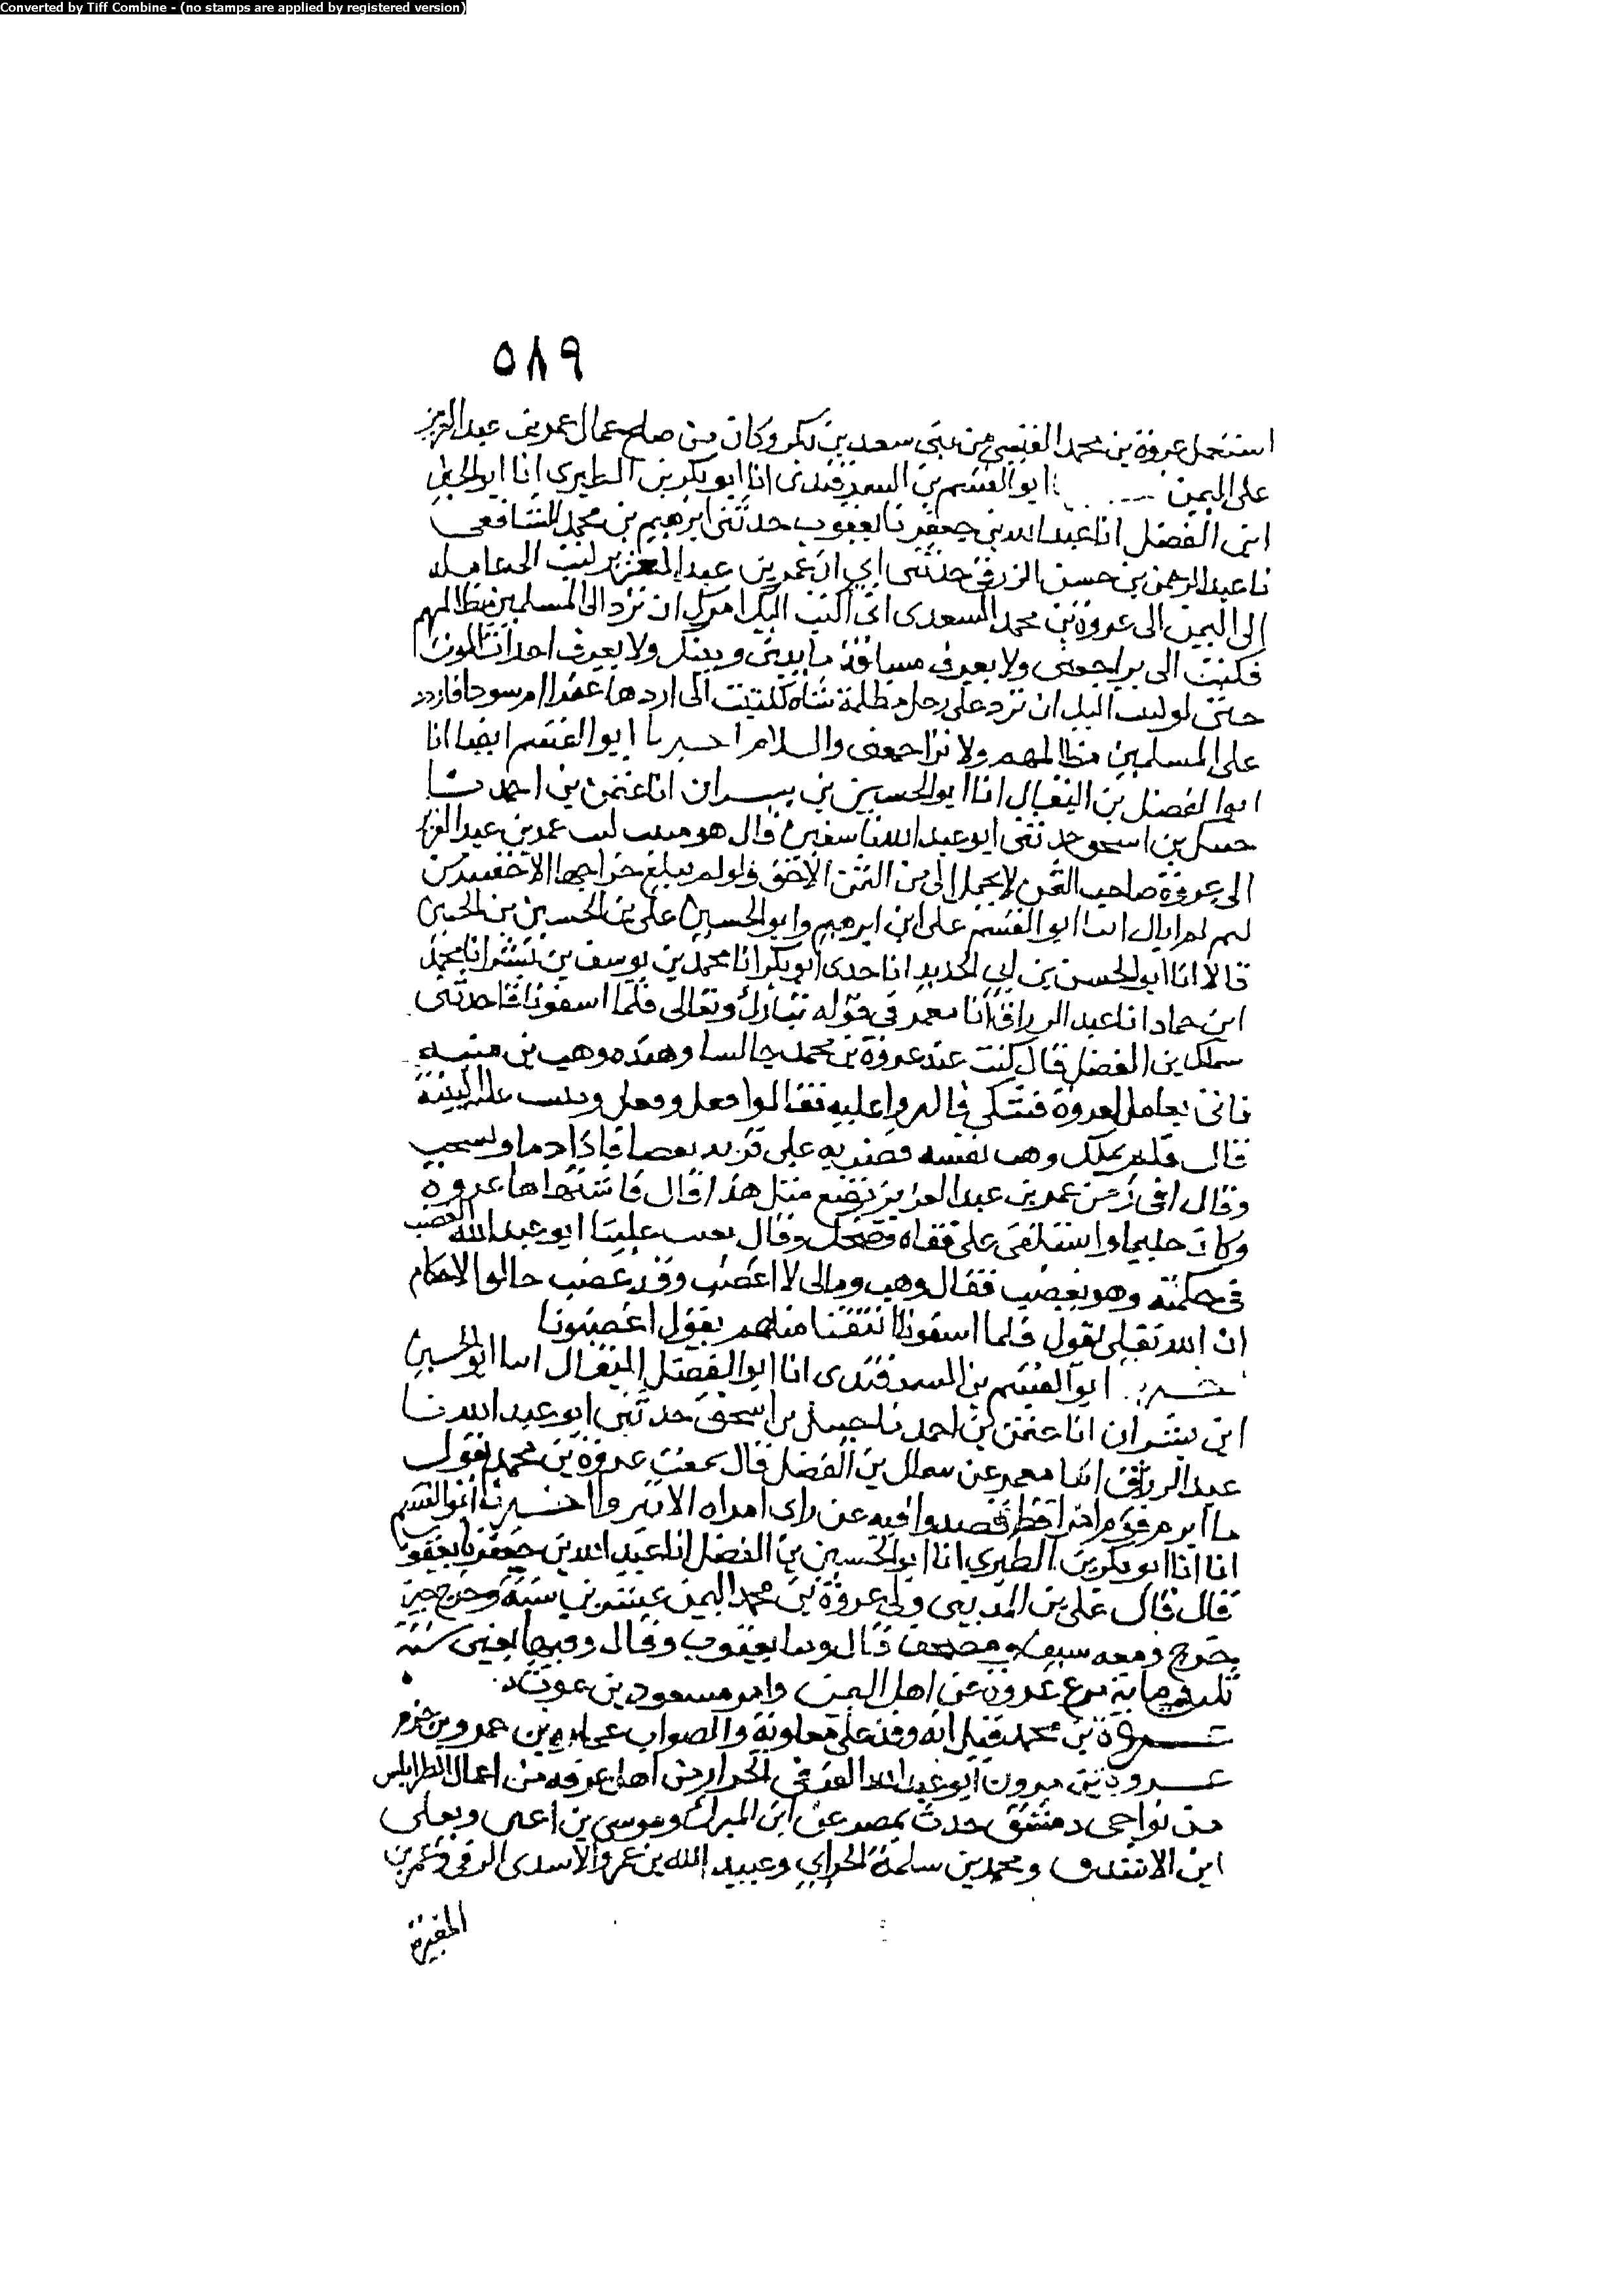 Converted by Tiff Combine - (no stamps are applied by registered version)
٥٨٩
استعمل عروة بن محمد القيسي من بني سعد بن بكر وكان من صلح عمال عمر بن عبد العزيز
على اليمن ابو القسم بن السمرقندي انا ابو بكر بن الطبري انا ابو الحسين
ابن الفضل انا عبد الله بن جعفر نا يعقوب حدثني ابرهيم بن محمد الشافعي
نا عبد الرحمن بن حسن الزرقي حدثني ابي ان عمر بن عبد العزيز كتب الى عامله
الى اليمن الى عروة بن محمد السعدي اني اكتب اليك امرك ان ترد الى المسلمين مظالمهم
فكتبت الى تراجعني ولا تعرف مسافة ما بيني وبينك ولا تعرف احداث الموت
حتى لو كتبت اليك ان ترد على رجل مظلمة شاة لكتبت الى اردها عفرا ام سودا فاردد
على المسلمين مظالمهم ولا تراجعني والسلام اخبرنا ابو القسم ايضا انا
ابو الفضل بن البقال انا ابو الحسين بن بشران انا عثمن بن احمد نا
حنبل بن اسحق حدثني ابو عبد الله نا سفين قال هو كتب عمر بن عبد العزيز
الى عروة صاحب اليمن لا يحمل الى من اليمن الا حق ولو لم يبلغ خراجها الا
لم ابال ابو القسم علي ابن ابرهيم وابو الحسين علي بن الحسين بن الحسين
قالا انا ابو الحسن بن ابي الحديد انا جدي ابو بكر انا محمد بن يوسف بن بشر انا محمد
ابن حماد انا عبد الرزاق انا معمر في قوله تبارك وتعالى فلما اسفونا قا حدثني
سماك بن الفضل قال كنت عند عروة بن محمد جالسا وعنده وهب بن منبه
فاتى بعامل لعروة فشكى فاكثروا عليه فقالوا فعل وفعل وثبتت عليه البينة
قال فلم يملك وهب نفسه فضربه على قرنه بعصا فاذا دماوه تشخب
وقال افي زمن عمر بن عبد العزيز تصنع مثل هذا قال فاشتهاها عروة
وكان حليما واستلقى على قفاه فضحك وقال يعيب علينا ابو عبد الله الغضب
في حكمته وهو يغضب فقال وهب ومالى لا اغضب وقد غضب خالق الاحلام
ان الله تعالى يقول فلما اسفونا انتقمنا منهم يقول اغضبونا
ابو القسم بن السمرقندي انا ابو الفضل البقال انا ابو الحسين
ابن بشران انا عثمن بن احمد نا حنبل بن اسحق حدثني ابو عبد الله نا
عبد الرزاق انا معمر عن سماك بن الفضل قال سمعت عروة بن محمد يقول
ما ابرم قوم امرا قط فصدروا فيه عن راي امراة الا تبر واخبرنا ابو القسم
انا انا ابو بكر بن الطبري انا ابو الحسين بن الفضل انا عبد الله بن جعفر نا يعقوب
قال قال علي بن المديني ولي عروة بن محمد اليمن عشرين سنة وخرج حين
خرج ومعه سيف ومصحف قال ونا يعقوب وقال وفيها يعني سنة
ثلث ومائة نزع عروة عن اهل اليمن وامر مسعود بن عوث
عروة بن محمد قيل انه وفد على معاوية والصواب عمارة بن عمرو بن حزم
عروة بن مرون ابو عبد الله العرقي الجرار من اهل عرقة من اعمال اطرابلس
من نواحي دمشق حدث بمصر عن ابن المبرك وموسى بن اعين ويعلى
ابن الاشدق ومحمد بن سلمة الحراني وعبيد الله بن عمرو الاسدي الرقي وعمر بن
المغيرة